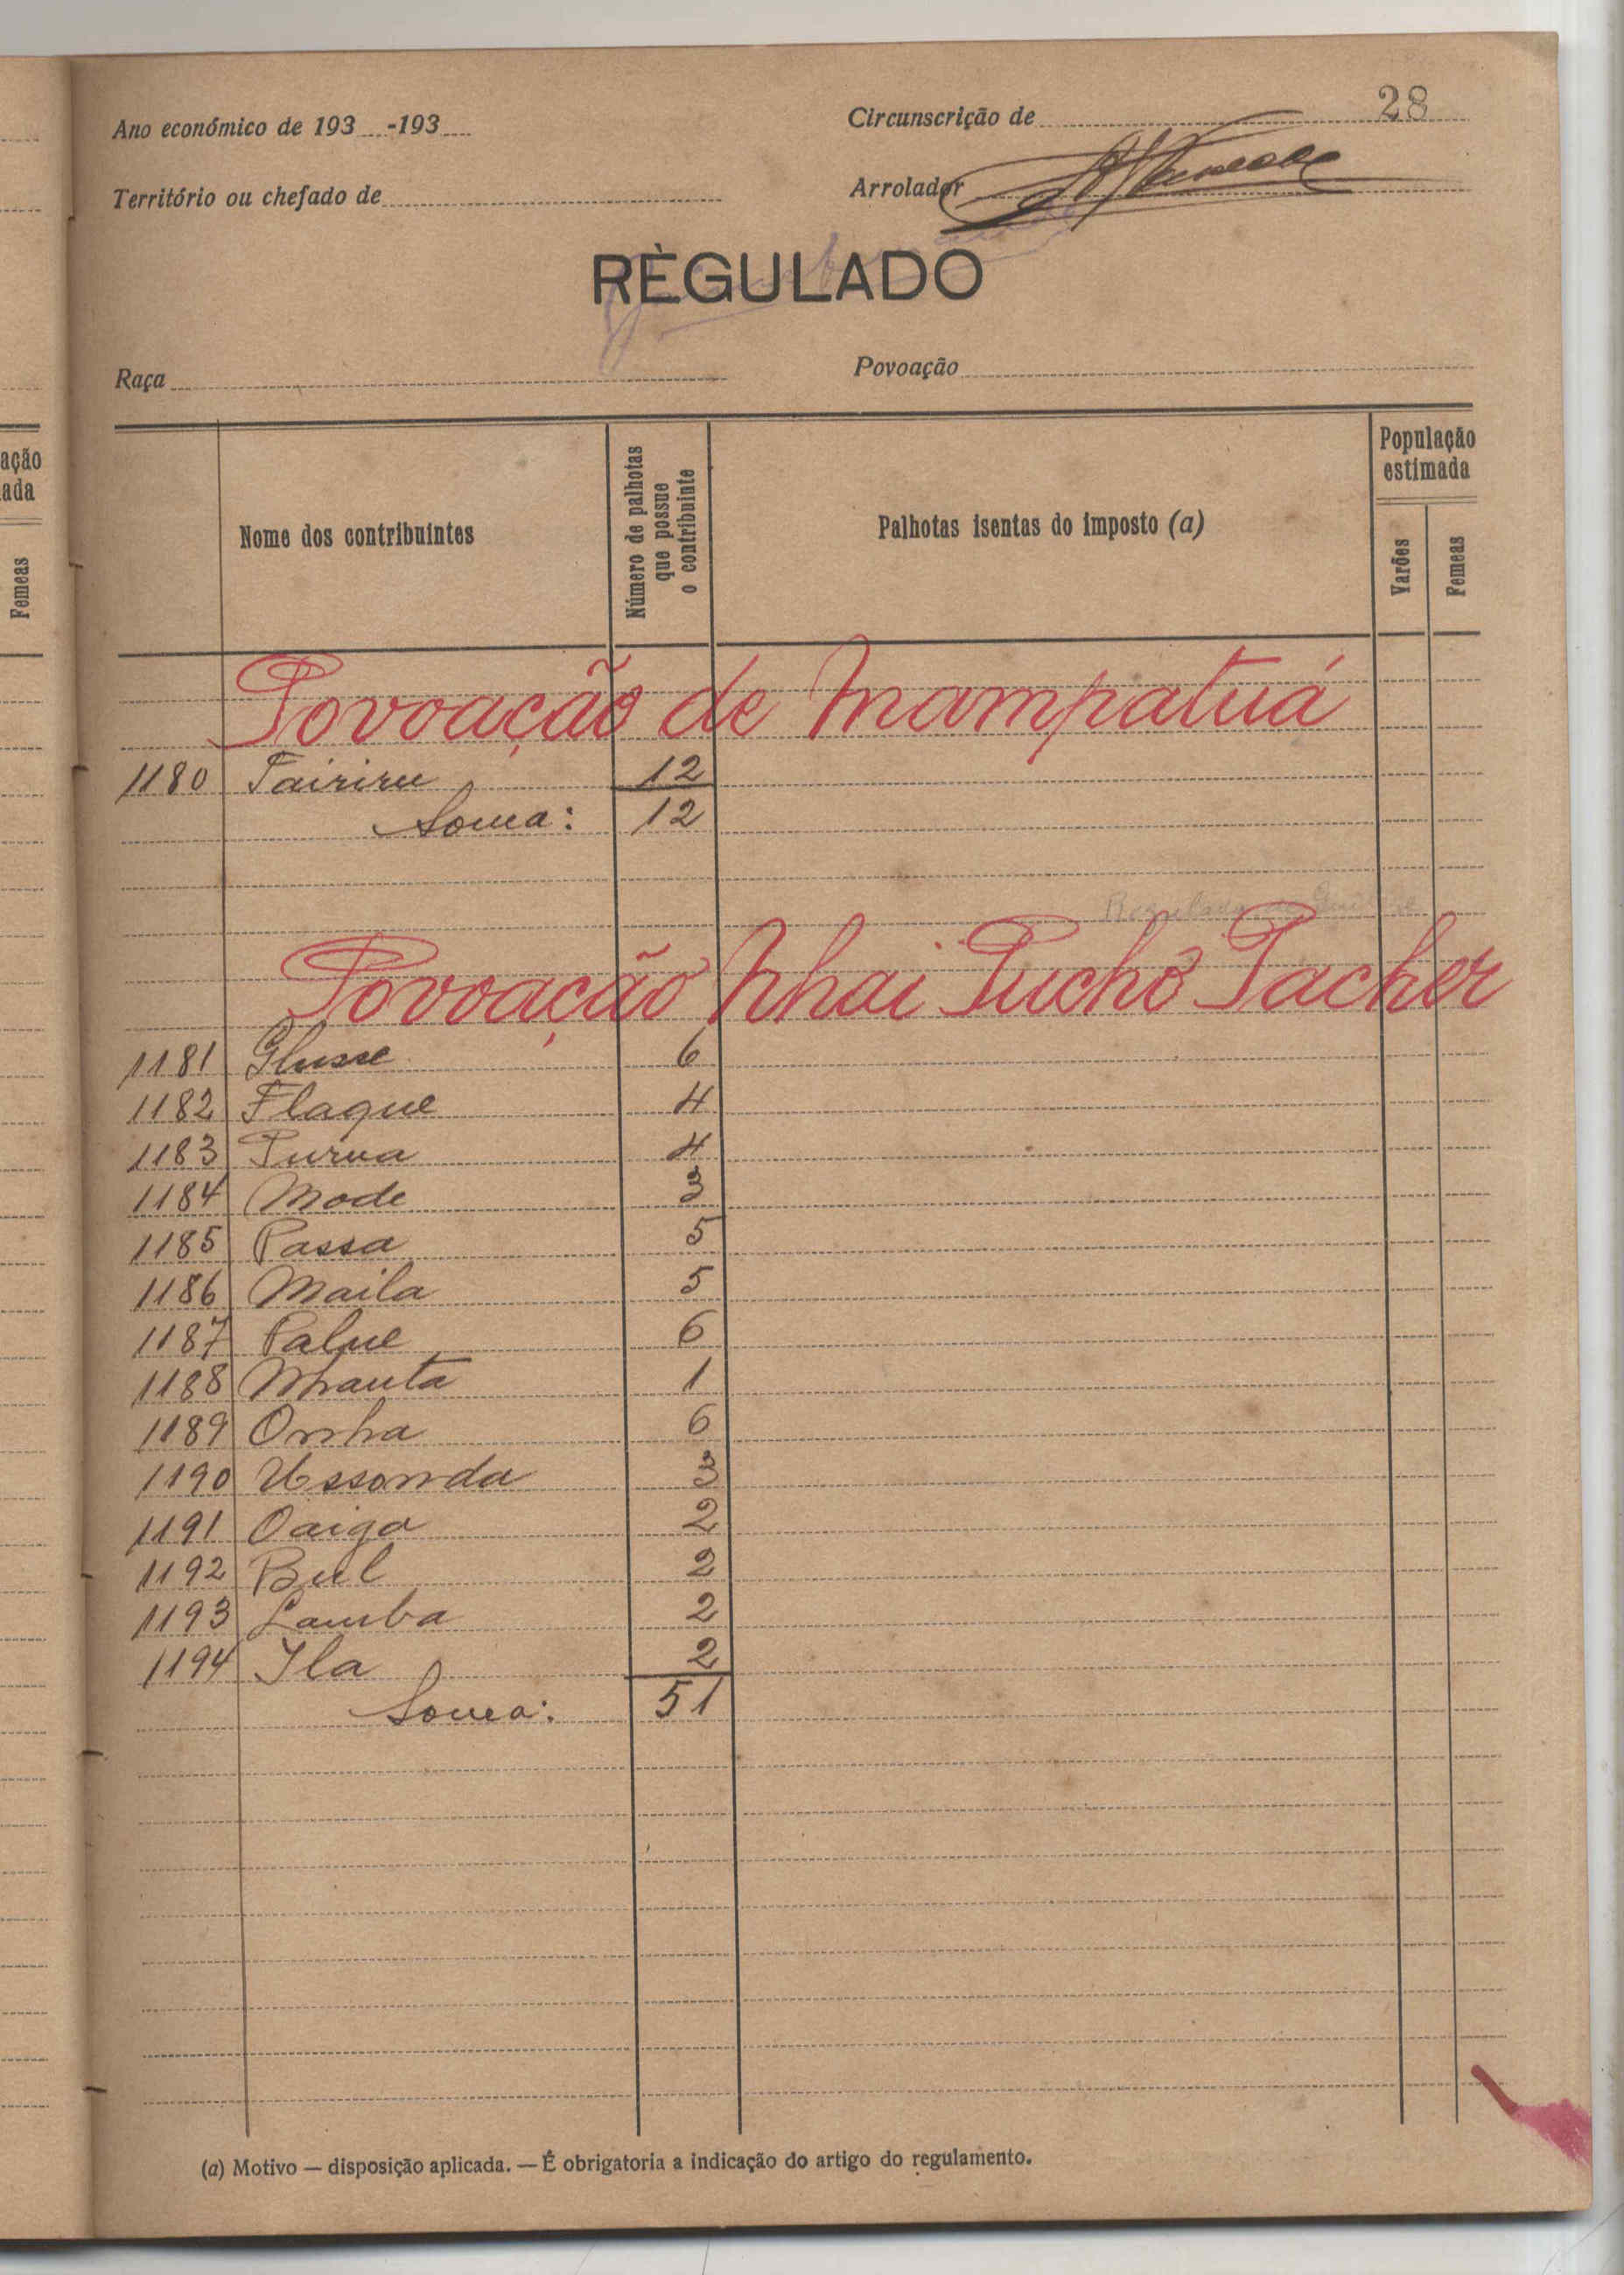 28
Ano económico de 193 -193
Circunscrição de
Território ou chefado de
Arrolador
RÈGULADO
Raça
Povoação
Nome dos contribuintes
Número de palhotas que possue o contribuinte
Palhotas isentas do imposto (a)
População estimada
Varões
Femeas
Povoação de Mampatuá
1180 Tairiru 12
Soma: 12
Povoação Nhai Puchó Pacher
1181 Glusse 6
1182 Flaque 4
1183 Purua 4
1184 Mode 3
1185 Passa 5
1186 Maila 5
1187 Palue 6
1188 Nhanta 1
1189 Onha 6
1190 Ussonda 3
1191 Oaiga 2
1192 Bul 2
1193 Lamba 2
1194 Ila 2
Soma: 51
(a) Motivo — disposição aplicada. — É obrigatoria a indicação do artigo do regulamento.
ação
ada
Femeas